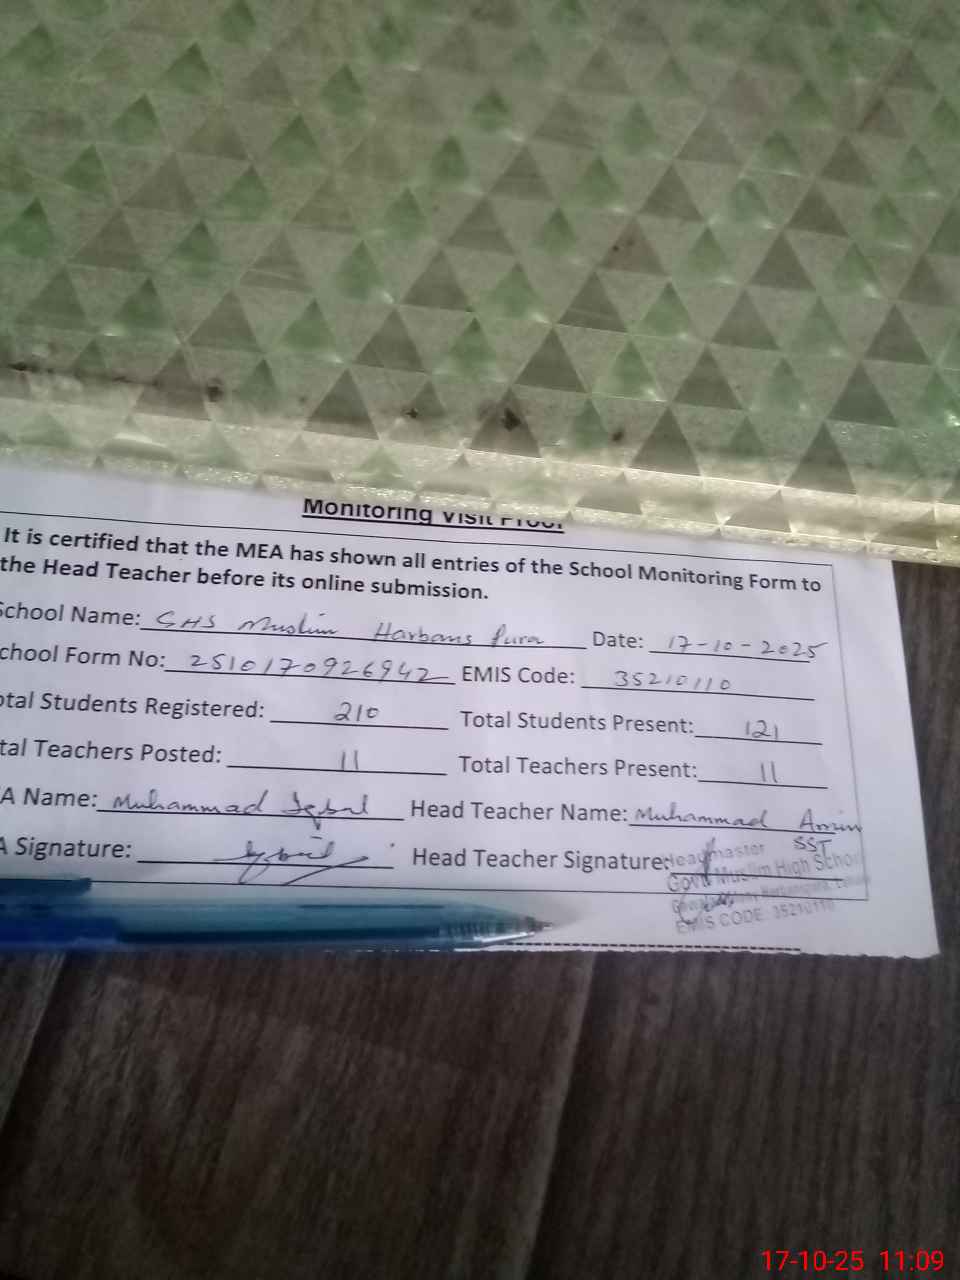 Monitoring Visit Proof
It is certified that the MEA has shown all entries of the School Monitoring Form to
the Head Teacher before its online submission.
School Name: GHS Muslim Harbans Pura Date: 17-10-2025
chool Form No: 2510170926942 EMIS Code: 35210110
otal Students Registered: 210 Total Students Present: 121
tal Teachers Posted: 11 Total Teachers Present: 11
A Name: Muhammad Iqbal Head Teacher Name: Muhammad Amin
SST
A Signature: Head Teacher Signature:
Headmaster
Govt Muslim High School
EMIS CODE 35210110
17-10-25 11:09